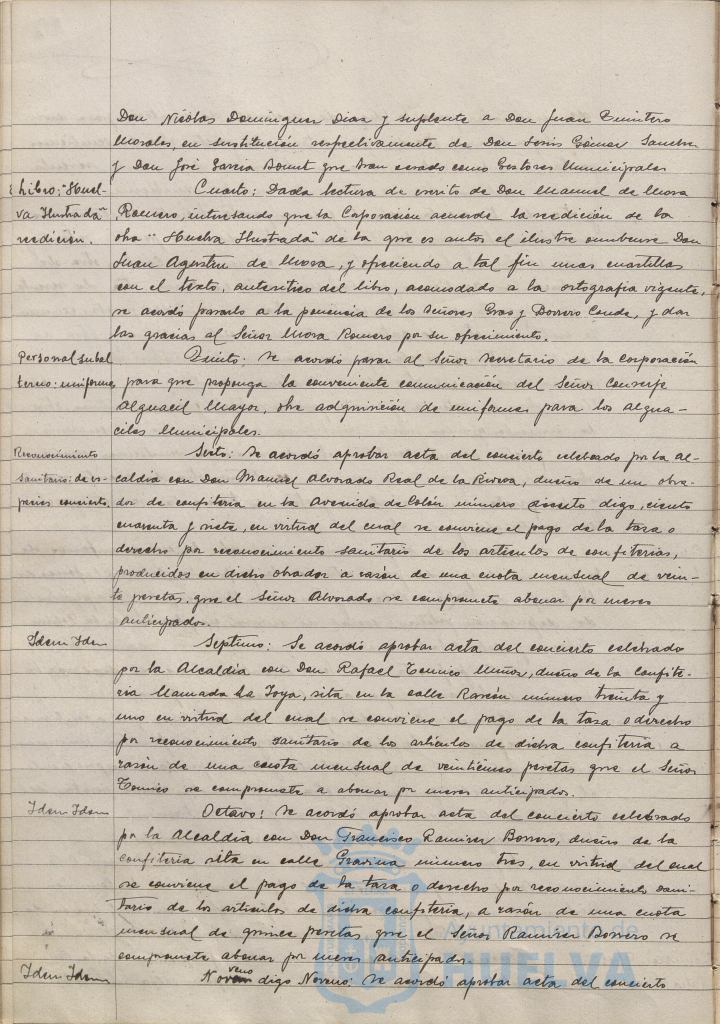 Don Nicolas Dominguez Diaz y suplente a Don Juan Quintero
Morales, en sustitución respectivamente de Don Jesús Gómez Sanchez
y Don José Garcia que han cesado como Gestores Municipales
Libro: "Huel-
va Ilustrada"
reedición.
Cuarto: Dada lectura de escrito de Don Manuel de Mora
Romero, interesando que la Corporación acuerde la reedición de la
obra "Huelva Ilustrada" de la que es autor el ilustre onubense Don
Juan Agustin de Mora, y ofreciendo a tal fin unas cuartillas
con el texto, autentico del libro, acomodado a la ortografia vigente,
se acordó pasarlo a la ponencia de los Señores Gras y Borrero Conde, y dar
las gracias al Señor Mora Romero por su ofrecimiento.
Personal subal
terno: uniforme
Quinto: Se acordó pasar al Señor Secretario de la Corporación
para que proponga la conveniente comunicación del Señor Conserje
Alguacil Mayor, sobre adquisición de uniformes para los algua-
ciles Municipales.
Reconocimiento
sanitario: de es-
pecies concierto.
Sexto: Se acordó aprobar acta del concierto celebrado por la Al-
caldia con Don Manuel Alvarado Real de la Riviva, dueño de un obra-
dor de confiteria en la Avenida de Colón número ciento digo, ciento
cuarenta y siete, en virtud del cual se conviene el pago de la tasa o
derecho por reconocimiento sanitario de los articulos de confiterias,
producidos en dicho obrador a razón de una cuota mensual de vein-
te pesetas, que el Señor Alvarado se compromete abonar por meses
anticipados.
Idem Idem
Septimo: Se acordó aprobar acta del concierto celebrado
por la Alcaldia con Don Rafael Tonnico Muñoz, dueño de la Confite-
ria llamada La Joya, sita en la calle Rascón número treinta y
uno en virtud del cual se conviene el pago de la tasa o derecho
por reconocimiento sanitario de los articulos de dicha confiteria a
razón de una cuota mensual de veinticinco pesetas que el Señor
Tonnico se compromete a abonar por meses anticipados.
Idem Idem
Octavo: Se acordó aprobar acta del concierto celebrado
por la Alcaldia con Don Francisco Ramirez Borrero, dueño de la
confiteria sita en calle Gravina número tres, en virtud del cual
se conviene el pago de la tasa o derecho por reconocimiento sani-
tario de los articulos de dicha confiteria, a razón de una cuota
mensual de quince pesetas, que el Señor Ramirez Borrero se
compromete abonar por meses anticipados.
Idem Idem
Noveno digo Noveno: Se acordó aprobar acta del concierto
Ayuntamiento de
HUELVA